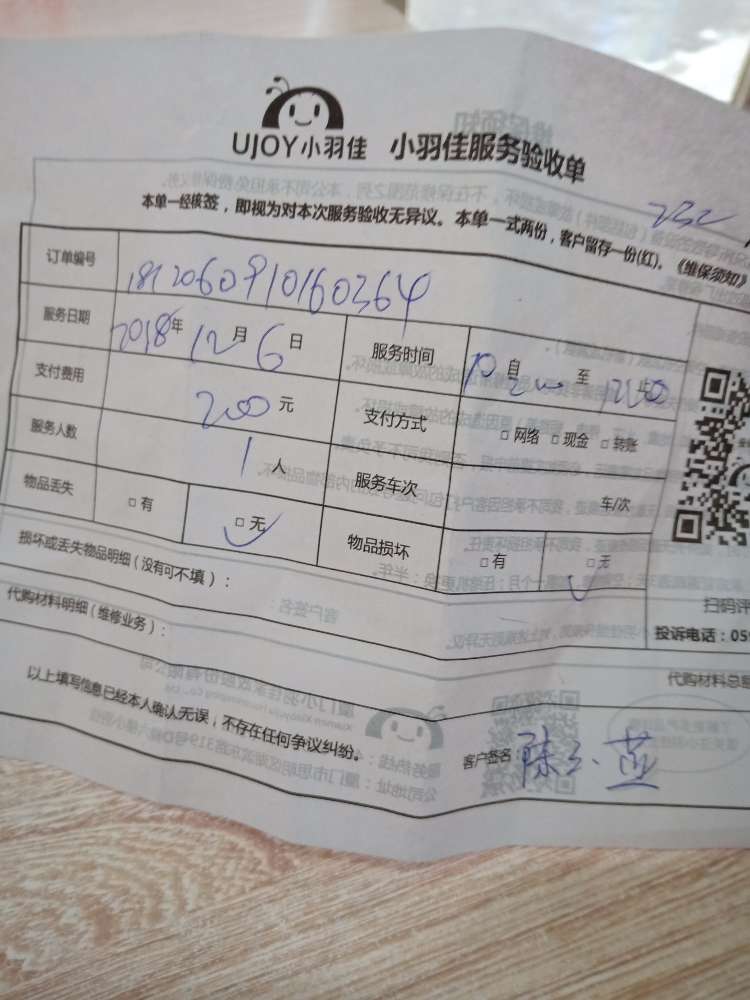 UJOY小羽佳 小羽佳服务验收单
232
本单一经核签，即视为对本次服务验收无异议。本单一式两份，客户留存一份(红)。《维保须知》
订单编号 1812060910160364
服务日期 2018年12月6日 服务时间 自 至 12:00 止
支付费用 200元 支付方式 □网络 □现金 □转账
服务人数 1人 服务车次 车/次
物品丢失 □有 □无 物品损坏 □有 □无
损坏或丢失物品明细（没有可不填）：
扫码评
代购材料明细（维修业务）：
投诉电话：05
代购材料总
以上填写信息已经本人确认无误，不存在任何争议纠纷。
客户签名